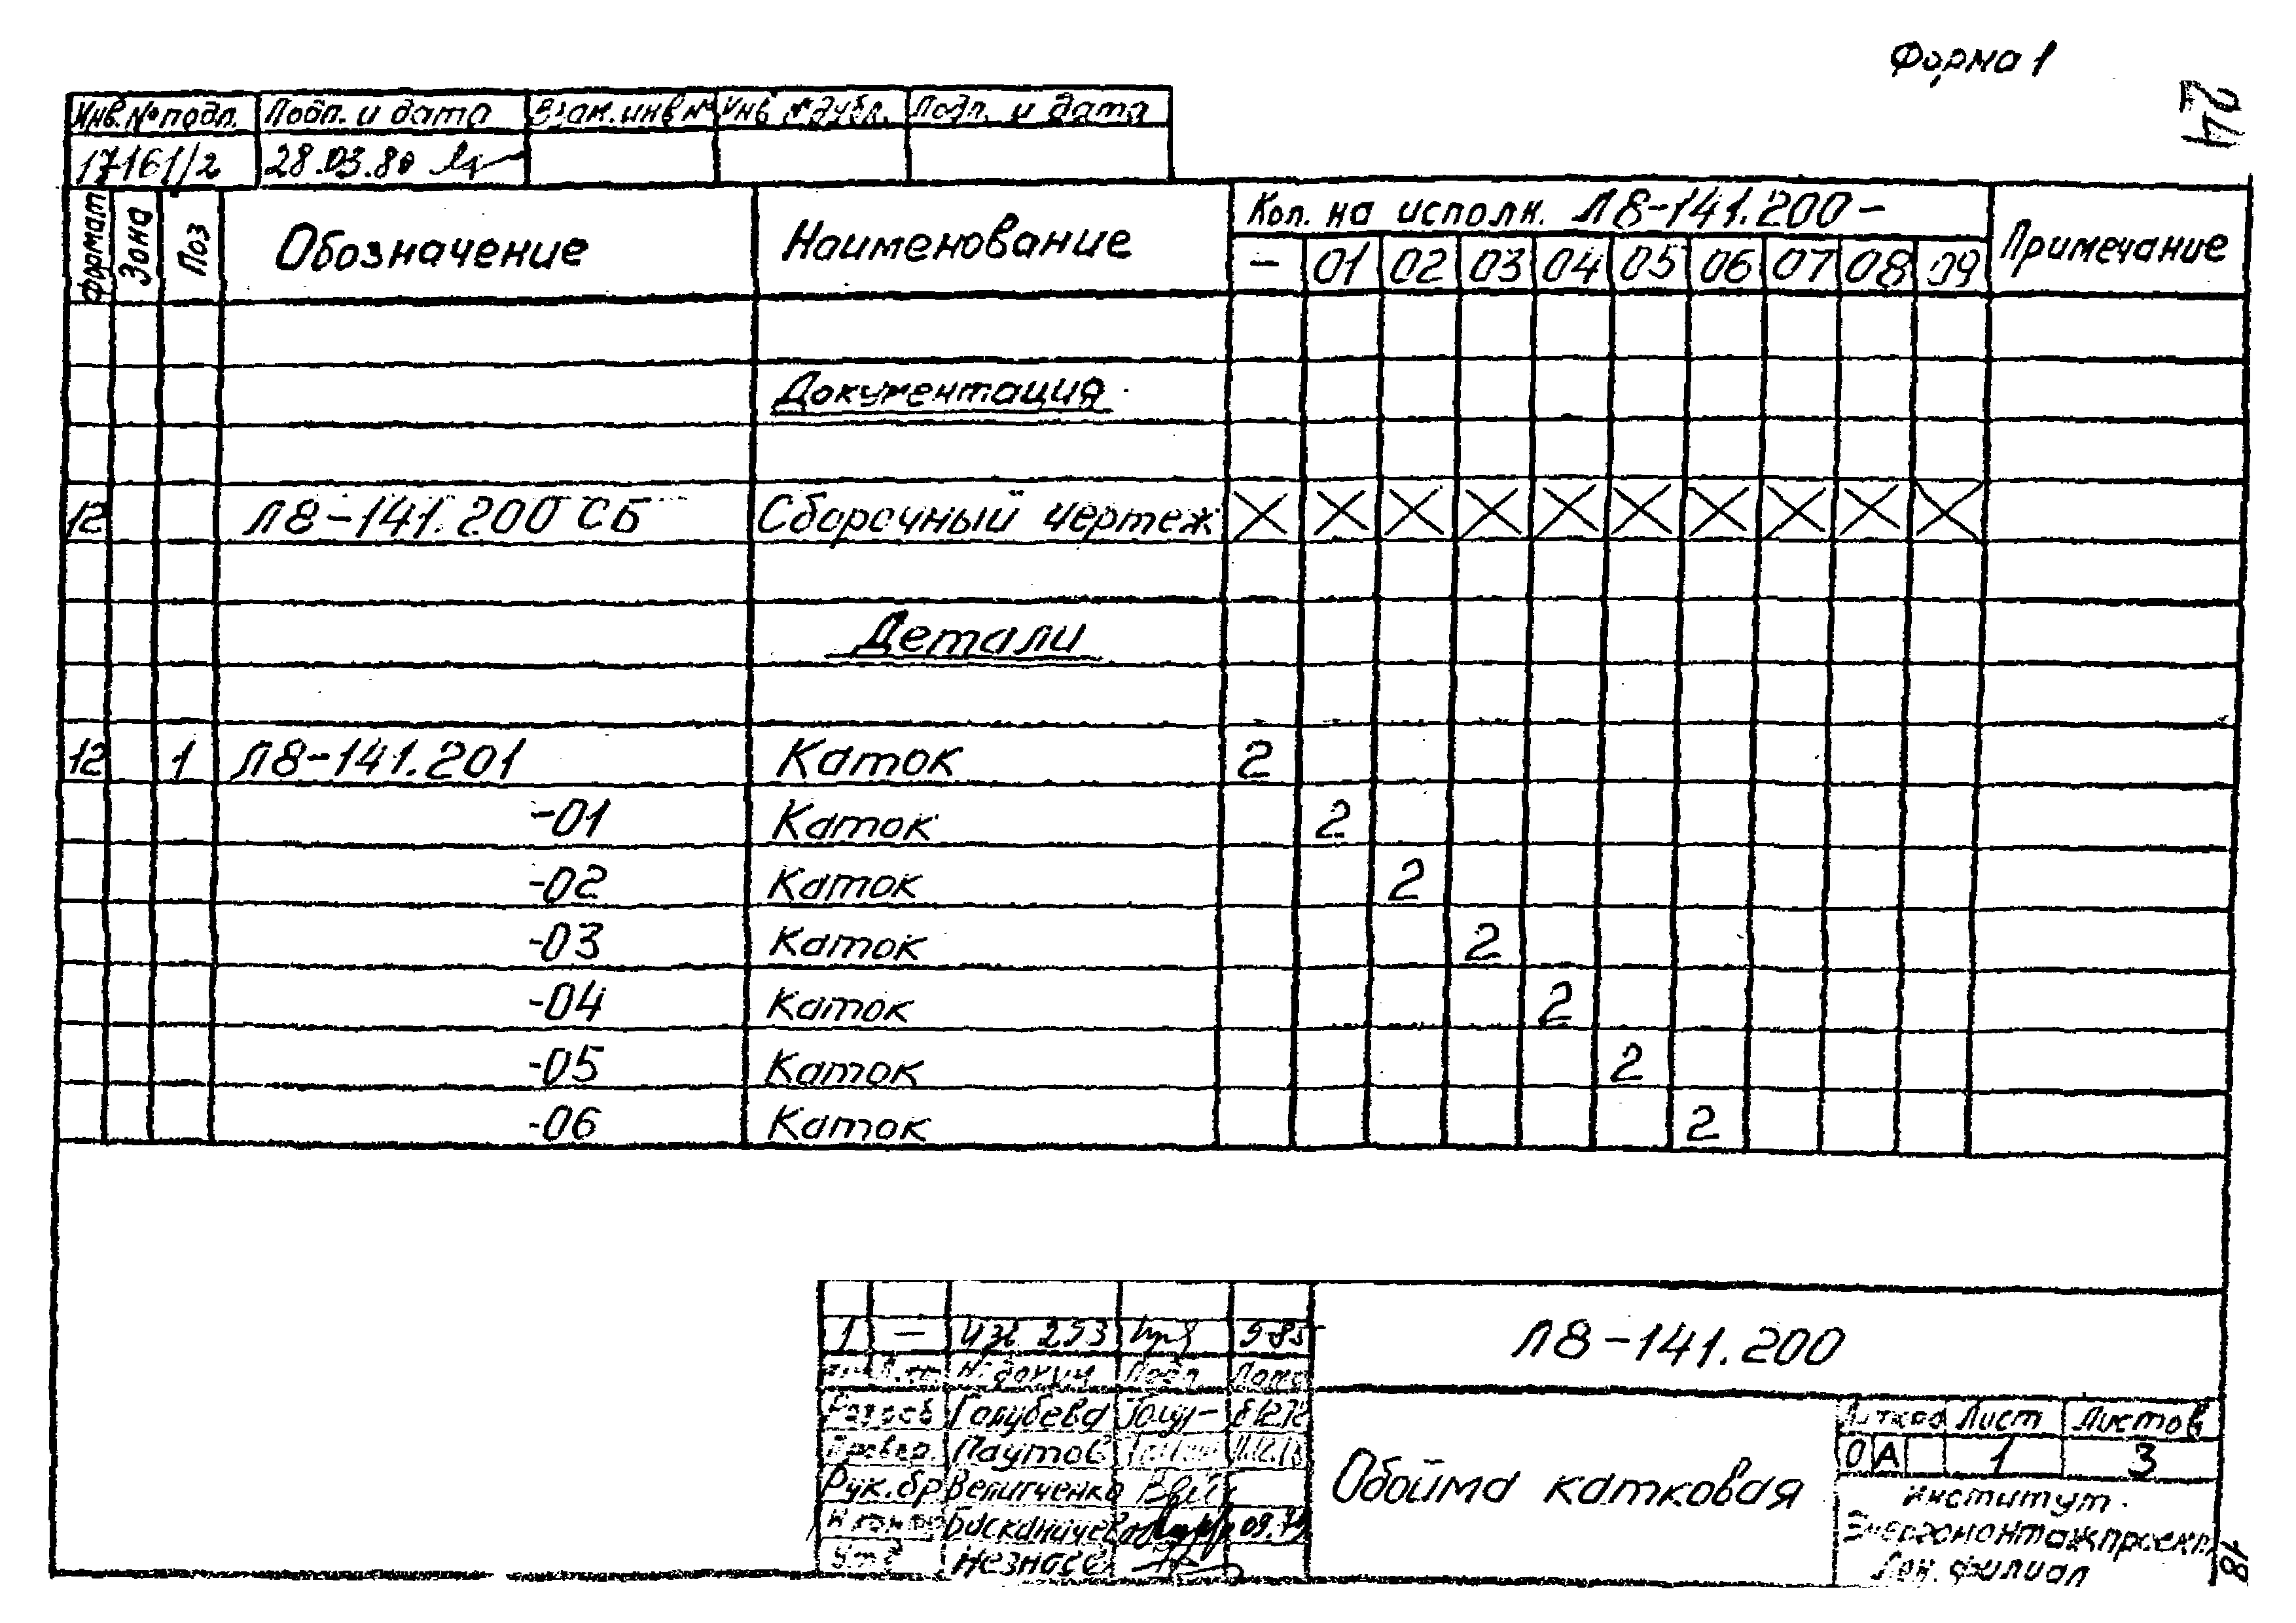 Форма 1
24
Инв.№подл. Подп. и дата Взам.инв№ Инв №дубл. Подп. и дата
17161/2 28.03.80
Формат Зона Поз Обозначение Наименование Кол. на исполн. Л8-141.200- Примечание
- 01 02 03 04 05 06 07 08 09
Документация
12 Л8-141.200 СБ Сборочный чертеж X X X X X X X X X X
Детали
12 1 Л8-141.201 Каток 2
-01 Каток 2
-02 Каток 2
-03 Каток 2
-04 Каток 2
-05 Каток 2
-06 Каток 2
1 - изв 253 5.85 Л8-141.200
№ докум Подп. Дата
Разраб Голубева
Провер. Паутов
Рук.бр Велитченко
Н.контр
Утв
Обойма катковая
Лист Листов
О А 1 3
Институт
Энергомонтажпроект
Лен. филиал
18